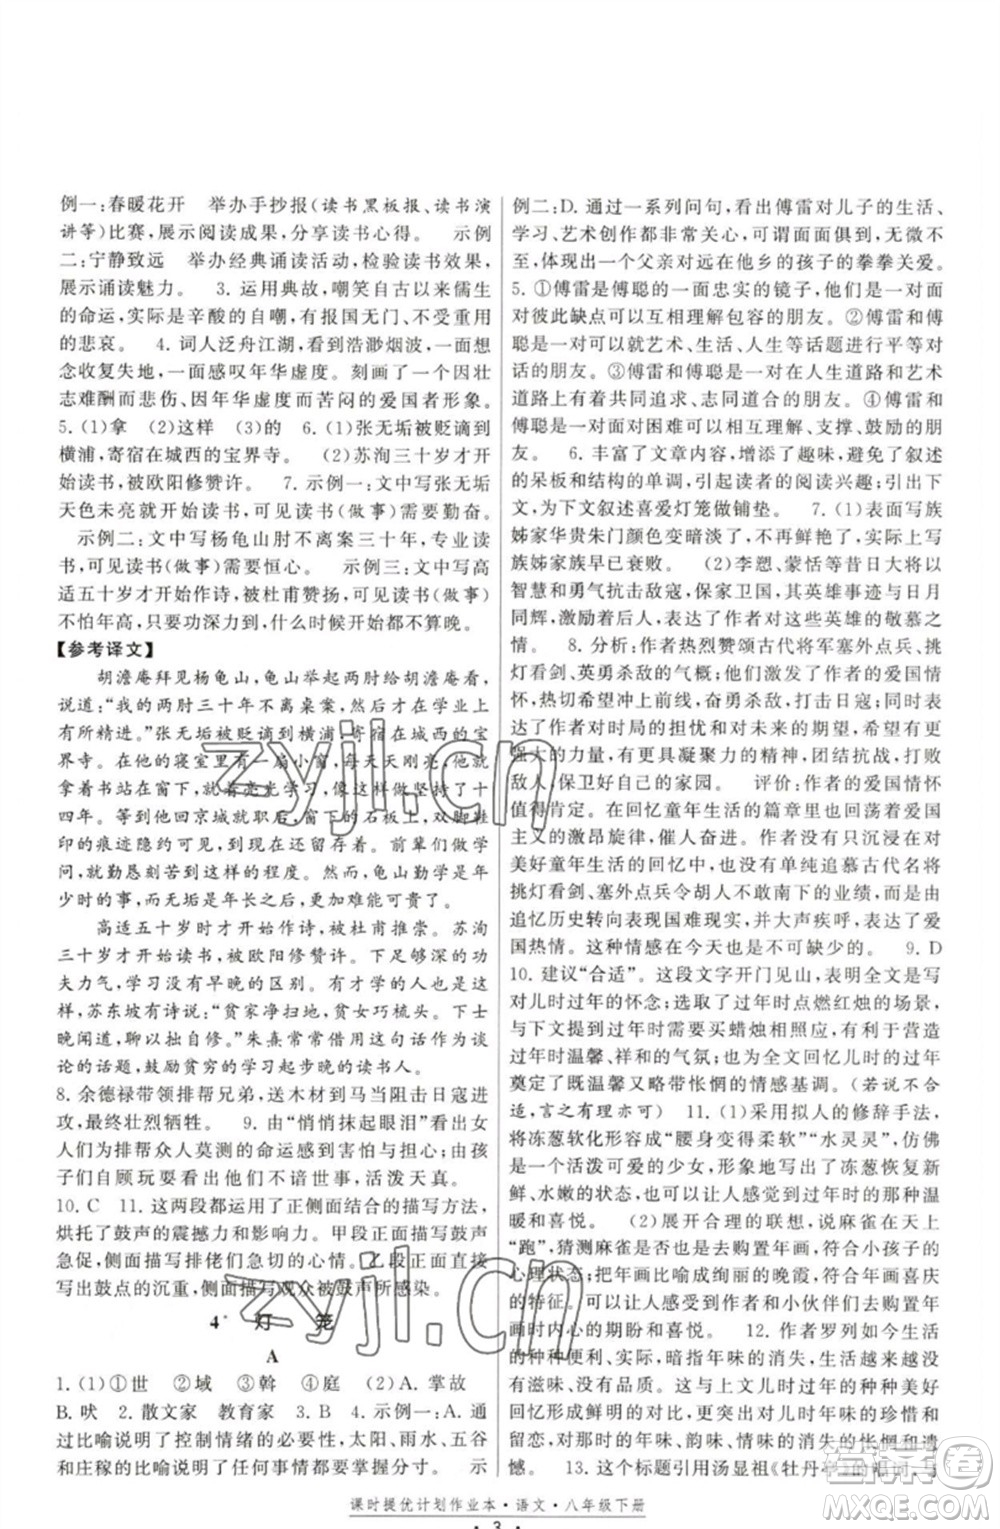 例一:春暖花开　举办手抄报(读书黑板报、读书演
讲等)比赛,展示阅读成果,分享读书心得。　示例
二:宁静致远　举办经典诵读活动,检验读书效果,
展示诵读魅力。　3. 运用典故,嘲笑自古以来儒生
的命运,实际是辛酸的自嘲,有报国无门、不用于世
的悲哀。　4. 词人泛舟江湖,看到浩渺烟波,一面想
起恢复失地,一面感叹年华虚度。塑造了一个因壮
志难酬而悲伤、因年华虚度而苦闷的爱国者形象。
5. (1)拿　(2)这样　(3)的　6. (1)张无垢被贬谪到
横浦,寄宿在城西的宝界寺。　(2)苏洵三十岁才开
始读书,被欧阳修赞许。　7. 示例一:文中写张无垢
天色未亮就开始读书,可见读书(做事)需要勤奋。
示例二:文中写杨龟山肘不离案三十年,专业读
书,可见读书(做事)需要恒心。　示例三:文中写高
适五十岁才开始作诗,被杜甫赞扬,可见读书(做事)
不怕年高,只要功深力到,什么时候开始都不算晚。
【参考译文】
胡澹庵拜见杨龟山,龟山举起两肘给胡澹庵看,
说道:“我的两肘三十年不离桌案,然后才在学业上
有所精进。”张无垢被贬谪到横浦,寄宿在城西的宝
界寺。他的寝室里有一扇小窗,每天天亮时他总是
拿着书站在窗下,就着亮光学习。像这样坚持了十
四年。等到他回京城的时候,窗下的石板上,双脚鞋
印的痕迹隐约可见,到现在还留存着。前辈们勤学
问,就勤恳刻苦到这样的程度。然而,龟山勤学是年
轻时,而无垢是年长之后,更加难能可贵了。
高适五十岁时才开始作诗,被杜甫推崇。苏洵
三十岁时才开始读书,被欧阳修赞许。下足够深的
功夫力气,学习没有早晚的区别。圣贤也有起初不
好学的,有才学的人也有后悔自己学得太晚的。然
而,苏东坡有诗说:“贫家净扫地,贫女巧梳头。下士
晚闻道,聊以自修。”朱熹常常借用这句话作为谈
论的话题,鼓励贫穷的学习起步晚的读书人。
8. 余德禄带领排帮兄弟,送木材到马当阻击日寇进
攻,最终壮烈牺牲。　9. 由“悄悄抹起眼泪”看出女
人们为排帮众人莫测的命运感到忧虑与牵挂;由孩
子们自顾玩耍可见他们的不谙世事,活泼天真。
10. C　11. 这两段都运用了正侧面结合的描写方法,
烘托了鼓声的震撼力和影响力。甲段正面描写鼓声
急促,侧面描写排佬们急切的心情。乙段正面描
写出鼓点的沉重,侧面描写观众被鼓声所感染。
4* 灯　笼
A
1. (1)①世　②域　③斡　④庭　(2)A. 掌故
B. 吠　2. 散文家　教育家　3. B　4. 示例一:A. 通
过比喻说明了控制情绪的必要性,太阳、雨水、五谷
和庄稼的比喻说明了任何事情都要掌握分寸。　示
例二:D. 通过一系列问句,看出傅雷对儿子的生活、
学习、艺术创作都非常关心,可谓面面俱到,无微不
至,从中感受到一位父亲对远在他乡的孩子的拳拳关爱。
5. ①傅雷是傅聪的一面忠实的镜子,他们是一对面
对彼此缺点可以互相理解包容的朋友。②傅雷和傅
聪是一对可以就艺术、生活、人生等话题平等自由交
流的朋友。③傅雷和傅聪是一对在人生道路和艺术
道路上有着共同追求、志同道合的朋友。④傅雷和
傅聪是一对面对困难可以相互理解、支撑、鼓励的朋
友。　6. 丰富了文章内容,增添了趣味,避免了叙述
的呆板和结构的单调,引起读者的阅读兴趣;呼应上
文,为下文叙述喜爱灯笼做铺垫。　7. (1)表面写族
姊家华贵朱门颜色变暗淡了,缺少了光彩,实际上写
族姊家族早已衰败。　(2)李愬、蒙恬等昔日大将以
智慧和勇气抗击敌寇,保家卫国,其英雄事迹与日月
同辉,激励着后人,表达了作者对这些英雄的敬慕之
情。　8. 分析:作者热烈赞颂古代将军塞外点兵、挑
灯看剑、英勇杀敌的气概;他们激发了作者的爱国情
怀,热切希望冲上前线,奋勇杀敌,打击日寇。作品
表达了作者对时局的担忧和对未来的期望,希望有更
强大的力量,有更具凝聚力的精神,团结抗战,打败
敌人,保卫好自己的家园。　评价:作者的爱国情怀
值得肯定。在回忆童年生活的篇章里也回荡着爱国
主义的激昂旋律,催人奋进。作者不只沉浸在对
美好童年生活的回忆中,也没有单纯追慕古代名将
挑灯看剑、塞外点兵令胡人不敢南下的业绩,而是由
追忆历史转向表现国难当前,并大声疾呼,激发了爱
国热情。这种情感在今天也是不可缺少的。　9. D
10. 建议“合适”。这段文字开门见山,点明全文是写
对儿时过年的怀念;选取了过年时点燃红烛的场景,
与下文回忆过年时购买蜡烛相照应,有利于营造过
年时温馨、祥和的气氛;也为下文回忆儿时的过年
定下了既温馨而又略带怅惘的情感基调。(若说不合
适,言之有理亦可)　11. (1)采用拟人的修辞手法,
将冻葱软化形容成“腰身变得柔软”“水灵灵”,仿佛
是一个活泼可爱的少女,形象地写出了冻葱的鲜活
、水嫩的状态,也写出了人们临到过年时的那种温
暖和喜悦。　(2)展开合理的联想,说麻雀在天上
“跑”,猜测麻雀是否也要去赶大集,符合小孩子的
心理状态;把年画比喻成绚丽的晚霞,符合年画喜庆
的特征。这些描写表现了作者和小伙伴们对过年
到来的期盼和喜悦。　12. 作者罗列如今生活
的种种便利、实际,暗指年味的消失,人们虽
没有嫌弃年味,却丢失了年味,与上文儿时过年的
情形形成鲜明的对比,表达了作者对年味的珍惜和
对年味、韵味、情味正在消失的怅惘和遗
憾。　13. 这个标题引用汤显祖《牡丹亭》的唱词,与
课时提优计划作业本·语文·八年级下册
· 3 ·
zyjl.cn
zyjl.cn